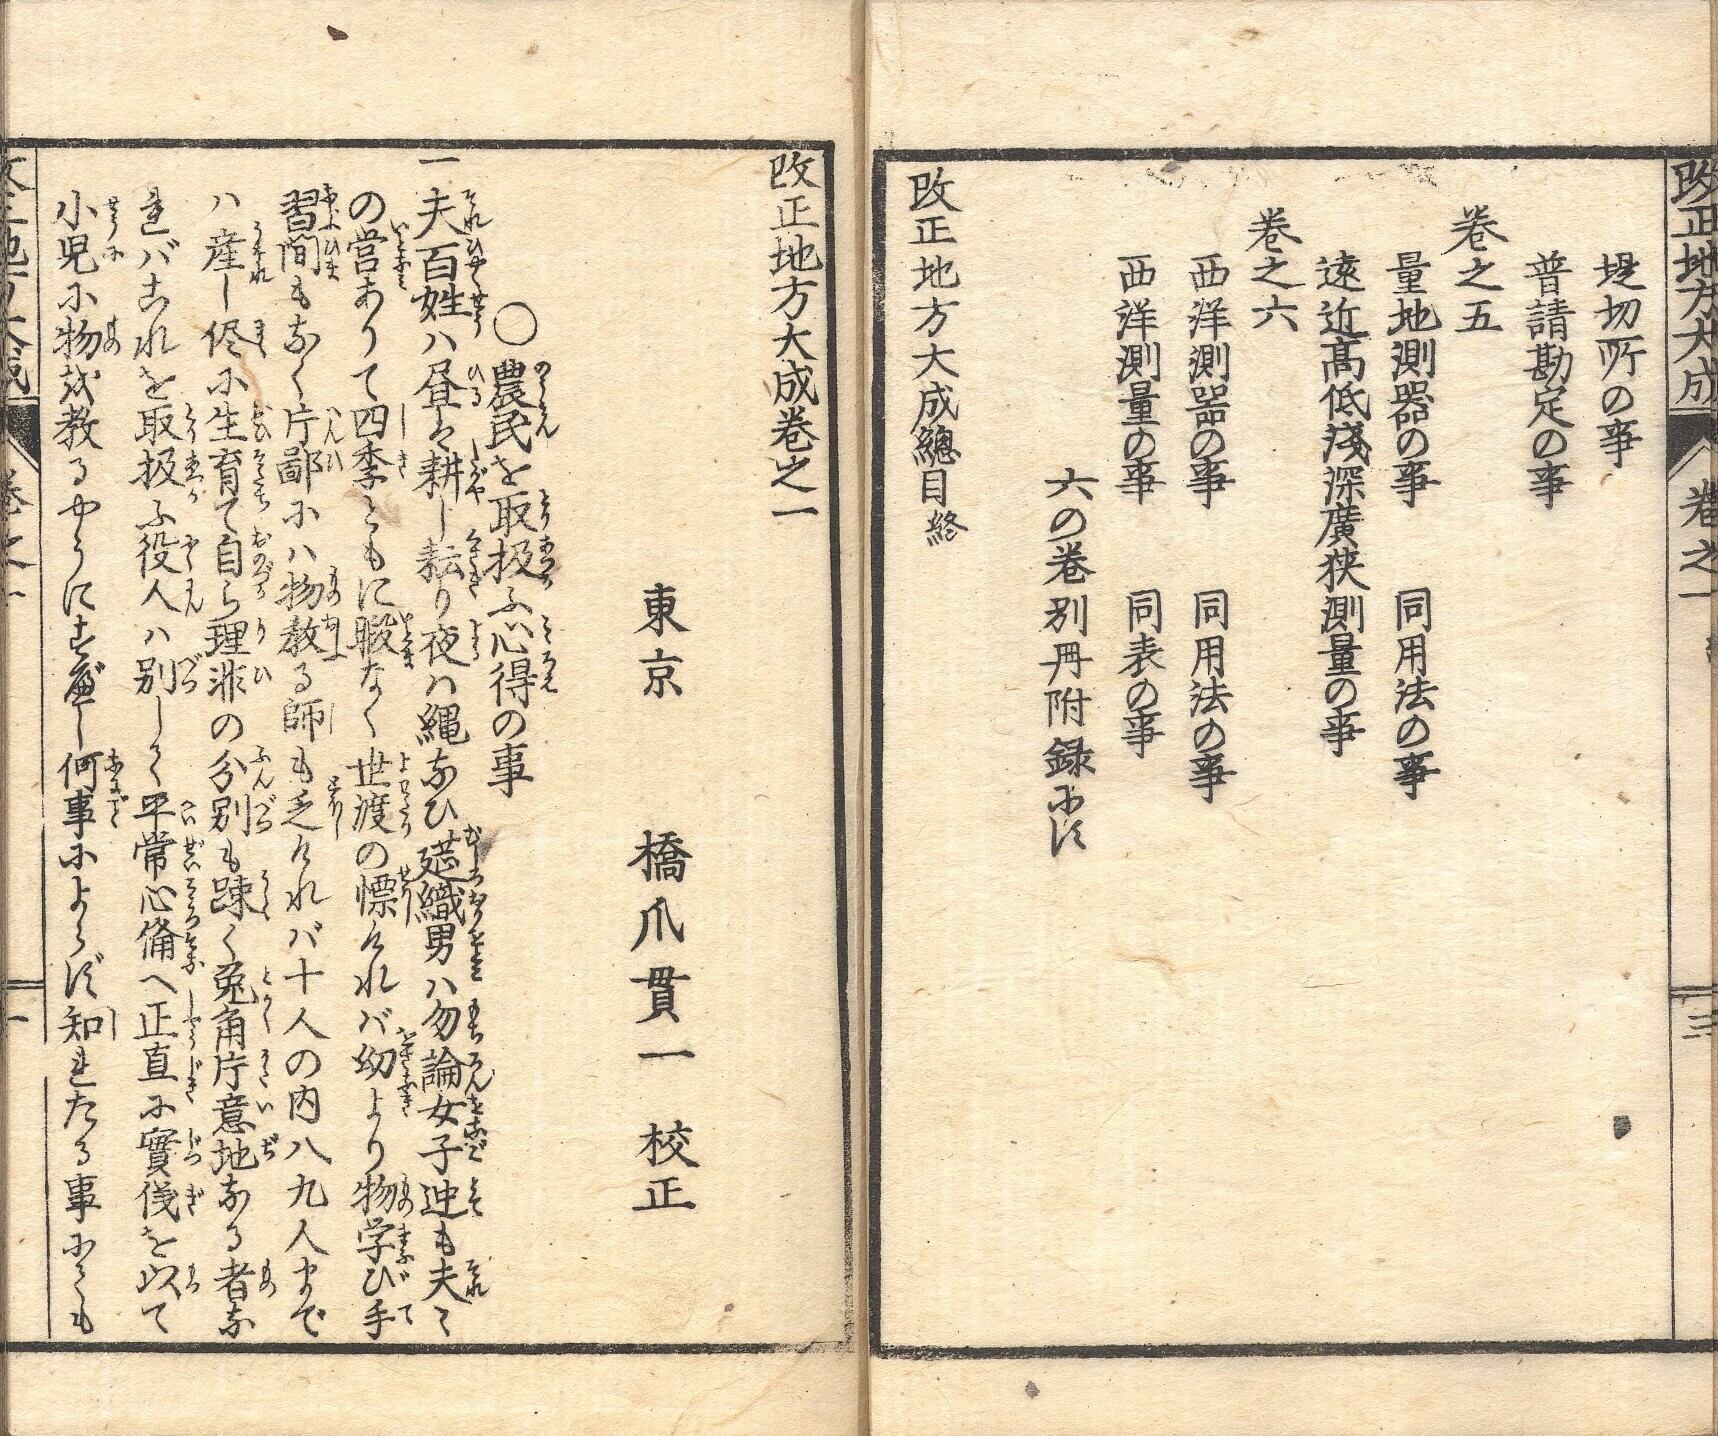 改正地方大成 卷之一 三
堤切所の事
普請勘定の事
卷之五
量地測器の事 同用法の事
遠近高低淺深廣狭測量の事
卷之六
西洋測器の事 同用法の事
西洋測量の事 同表の事
六の卷別冊附録に出す
改正地方大成總目終
改正地方大成卷之一
東京 橋爪貫一 校正
○農民を取扱ふ心得の事
一夫百姓ハ昼は耕し耘り夜ハ縄なひ莚織男ハ勿論女子迚も夫〻
の営ありて四季ともに暇なく世渡の慓けれバ幼より物学び手
習間もなく片鄙にハ物教る師も乏けれバ十人の内八九人まで
ハ産し侭に生育て自ら理非の分別も踈く兎角片意地なる者な
れバこれを取扱ふ役人ハ別しく平常心備へ正直に實儀を以て
小児に物を教るやうにすべし何事によらず知れたる事にても
改正地方大成 卷之一 一